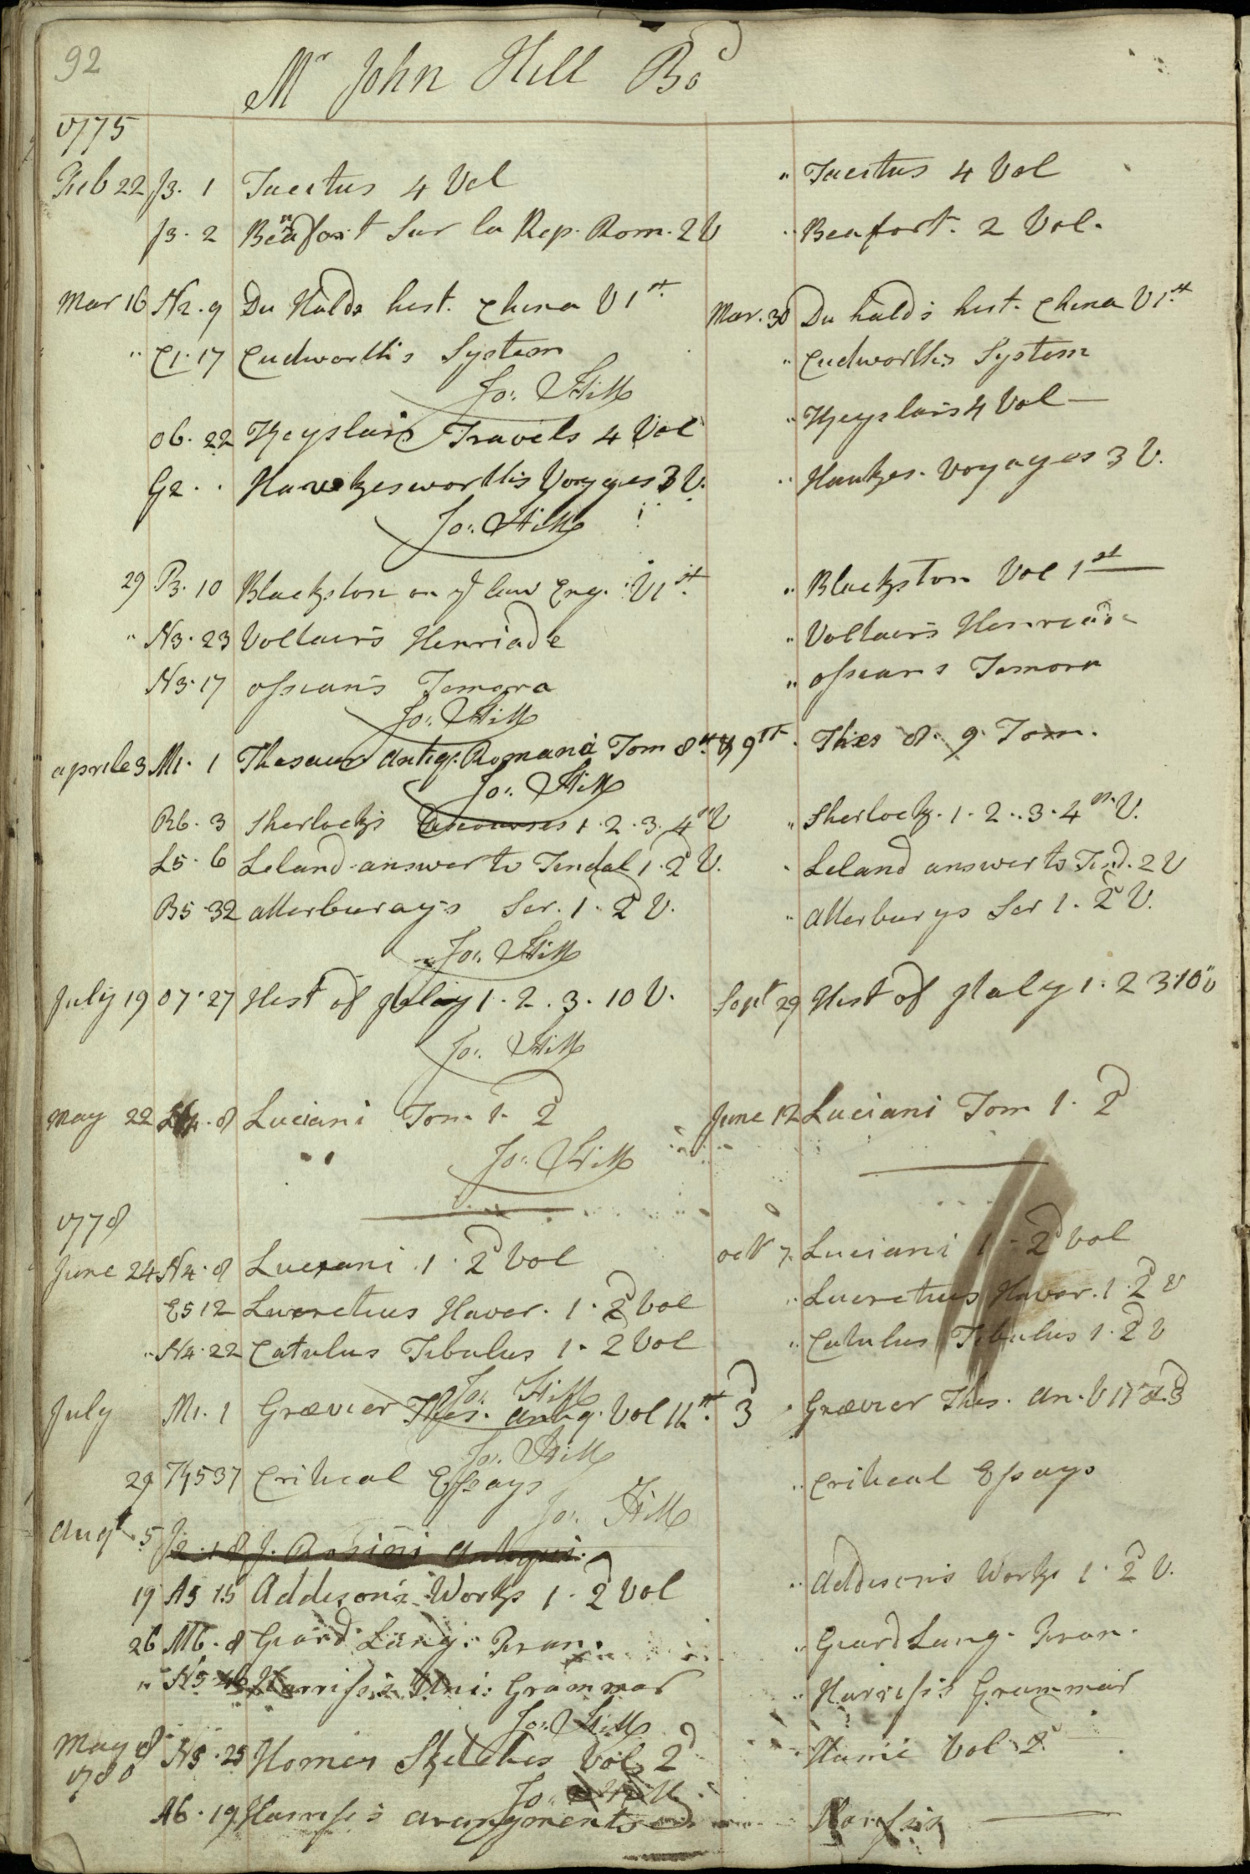 92
Mr John Hill Bod
1775
Feb 22 J3. 1 Tacitus 4 Vol " Tacitus 4 Vol
J3. 2 Beaufort Sur la Rep. Rom. 2 V " Beafort. 2 Vol.
Mar 16 N2. 9 Du Halds hist. China V 1st. Mar. 30 Du halds hist. China V 1st
" C1. 17 Cudworth's System " Cudworths System
Jo: Hill
O6. 22 Keyslairs Travels 4 Vol " Keyslairs 4 Vol
G2 . . Hawkesworth's Voyages 3 V. " Hawkes. Voyages 3 V.
Jo: Hill
29 P3. 10 Blackston on ye law Eng. V 1st. " Blackston Vol 1st
" N3. 23 Voltairs Henriade " Voltairs Henriade
N3. 17 Ossian's Temora " Ossians Temora
Jo: Hill
Aprile 3 M1. 1 Thesaur Antiq. Romana Tom 8th & 9th " Thes 8. 9. Tom.
Jo: Hill
R6. 3 Sherlock's Discourses 1. 2. 3. 4th V " Sherlock. 1. 2. 3. 4th V.
L5. 6 Leland answer to Tindal 1. 2d V. " Leland answer to Tind. 2 V
B5. 32 Atterburay's Ser. 1. 2d V. " Atterburys Ser 1. 2d V.
Jo: Hill
July 19 O7. 27 Hist of Italy 1. 2. 3. 10 V. Sept 29 Hist of Italy 1. 2 3. 10 V
Jo: Hill
May 22 8 Luciani Tom 1. 2d June 12 Luciani Tom 1. 2d
Jo: Hill
1778
June 24 N4. 8 Luciani 1. 2d Vol Octr 7 Luciani 1. 2d Vol
E5 12 Lucretius Haver. 1. 2d Vol " Lucretius Haver. 1. 2d V
" N4. 22 Catulus Tibulus 1. 2 Vol " Catulus Tibulus 1. 2d V
Jo: Hill
July M1. 1 Grævier Thes. Antiq. Vol 11st. 3d " Grævier Thes. An. V 11st 3d
Jo: Hill
29 K5 37 Critical Essays " Critical Essays
Jo: Hill
Augt 5 J2. 18 J. Rosini Antiqui.
19 A5 15 Addison's Works 1. 2d Vol " Addison's Works 1. 2d V.
26 M6. 8 Geard Lang. Fran. " Geard Lang. Fran.
" N5 46 Harriss's Uni: Grammar " Harriss's Grammar
Jo: Hill
May 8 1780 N5. 25 Homes Sketches Vol 2d " Hume Vol 2d
Jo: Hill
A6. 19 Harriss's arangments " Harriss's